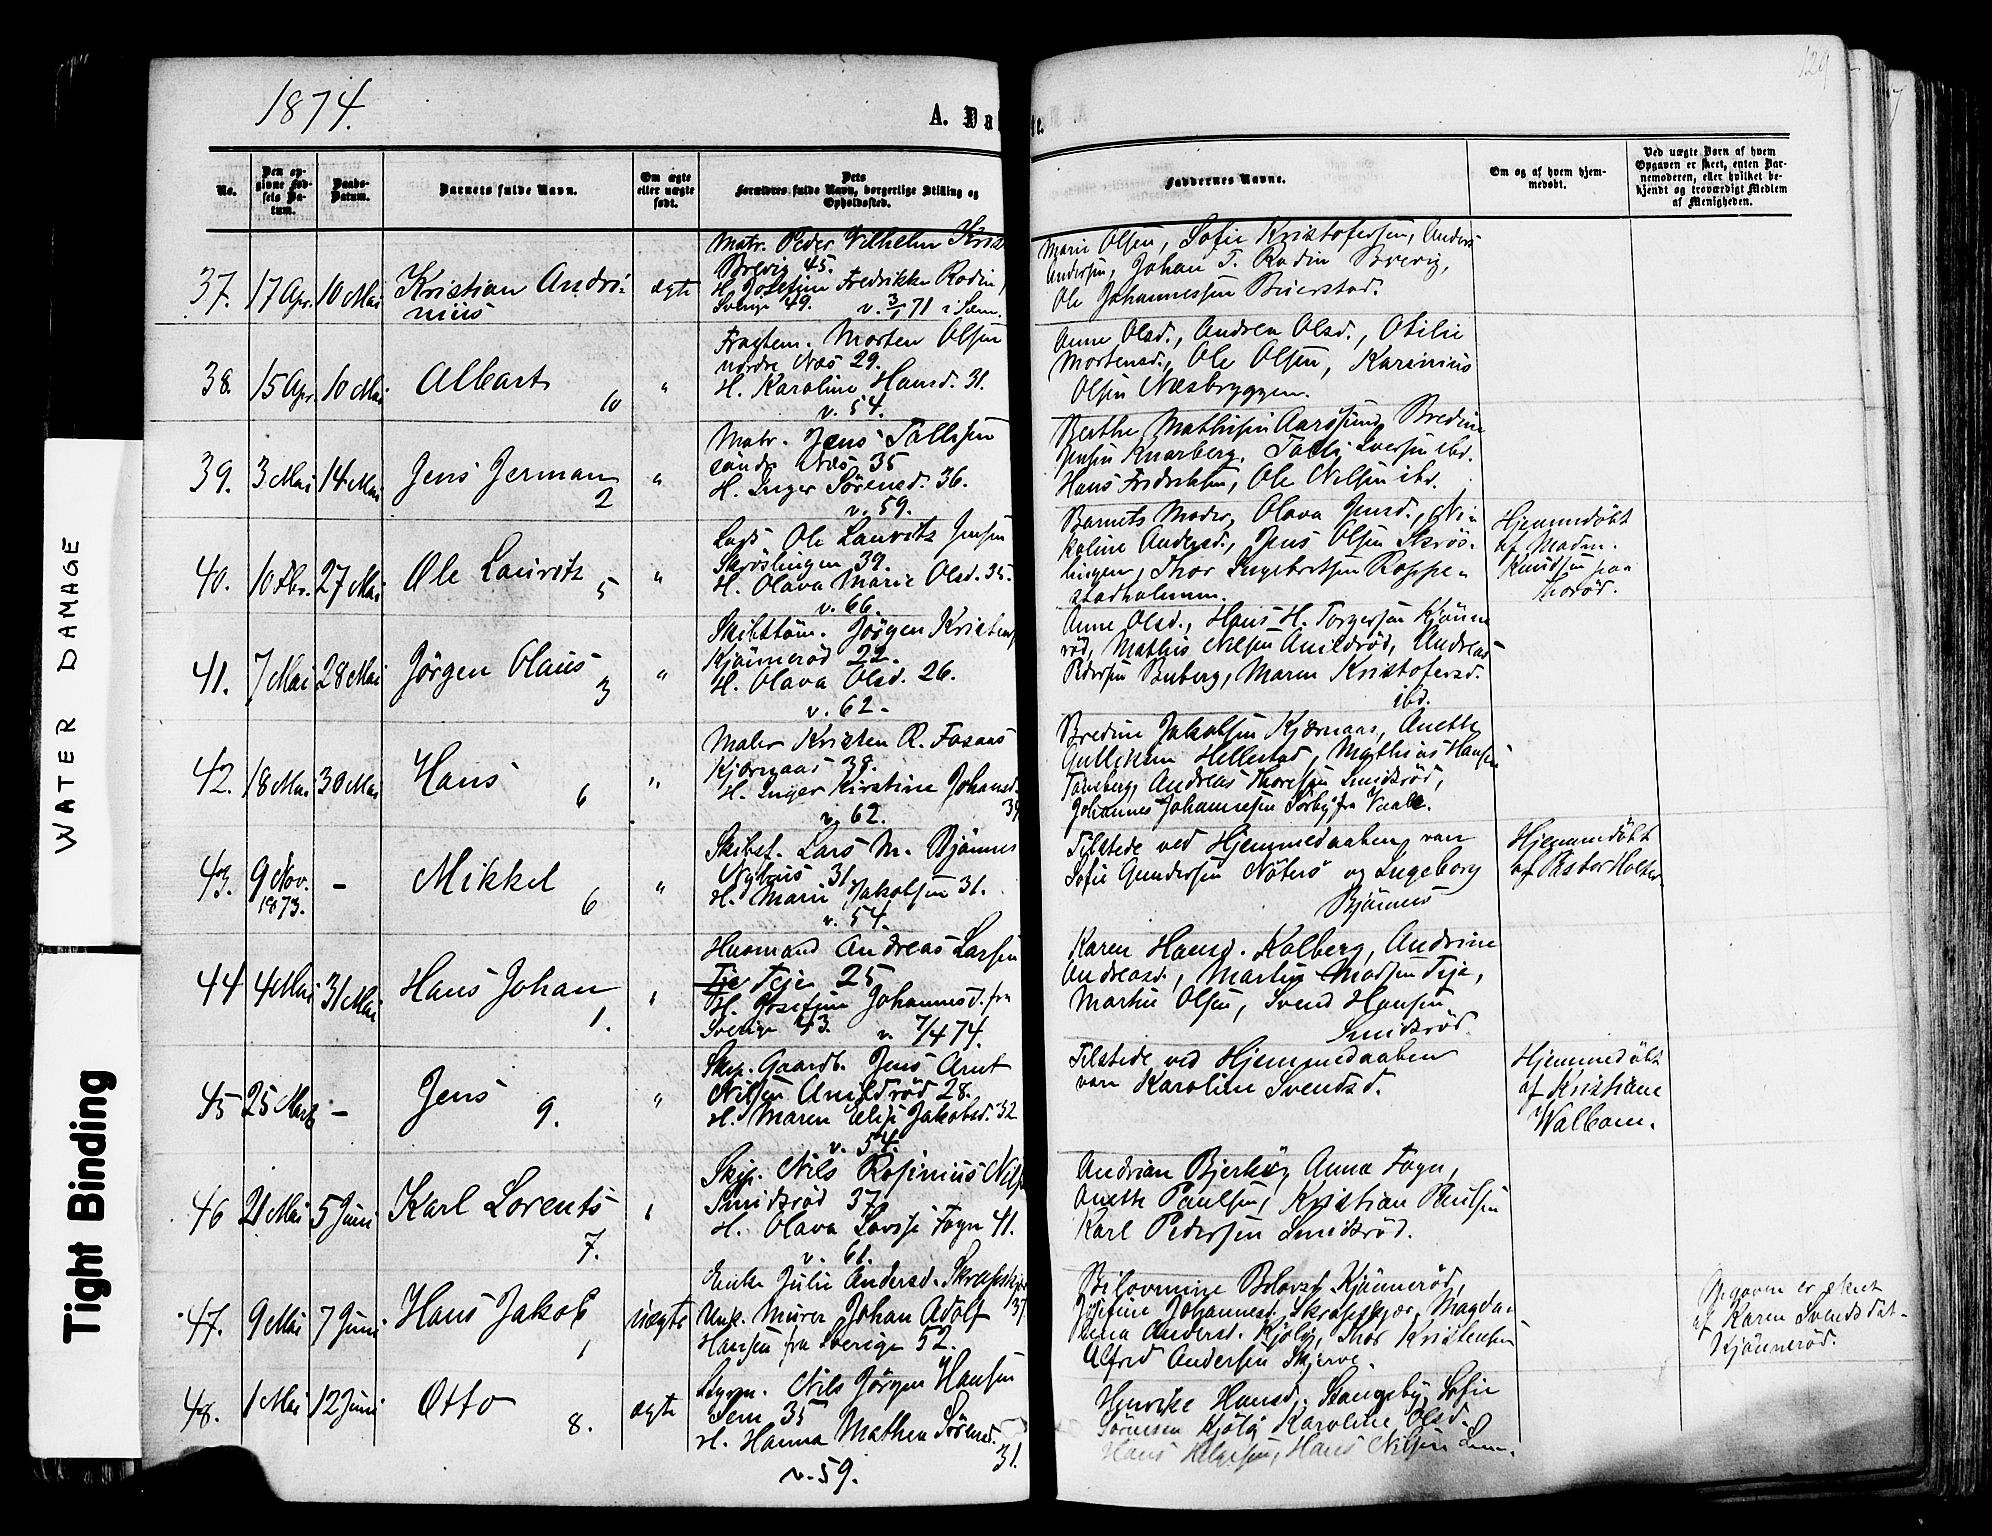 1874.
129
A. Da
te.
No.
Den op-
givne Fød-
sels Da-
tum.
Daabs-
Datum.
Barnets fulde Navn.
Om ægte
eller uægte
født.
Dets
Forældres fulde Navn, borgerlige Stilling og
Opholdssted.
Faddernes Navne.
Om og af hvem hjem-
medøbt.
Ved uægte Børn af hvem
Opgaven er skeet, enten Bar-
nemoderen, eller hvilket be-
kjendt og troværdigt Medlem
af Menigheden.
37. 17 Apr. 10 Mai Kristian Andri-
nius
ægte
Matr. Peder Vilhelm Kris
Brevig 45.
H. Josefine Fredrikke Rodin,
Sverige 49. v. 3/1 71 i Sem.
Marie Olsen, Sofie Kristofersen, Anders
Andersen, Johan T. Rodin Brevig,
Ole Johannessen Buerstad.
38. 15 Apr. 10 Mai Albart 10 "
Fragtem. Morten Olsen
nordre Næs 29.
H. Karoline Hansd. 31.
v. 54.
Anne Olsd., Andrea Olsd., Otilie
Mortensd., Ole Olsen, Karinius
Olsen Næsbryggen.
39. 3 Mai 14 Mai Jens Jerman 2 "
Matr. Jens Tallessen
søndr Næs 35
H. Inger Sørensd. 36.
v. 59.
Berthe Mathisen Aarøsund, Bredine
Jensen Knarberg, Iversen ibd.
Hans Fredriksen, Ole Nilsen ibd.
40. 10 Fbr. 27 Mai Ole Lauritz 5 "
Lods Ole Lauritz Jensen
Skrøslingen 39.
H. Olava Marie Olsd. 35.
v. 66.
Barnets Moder, Olava Jensd., Ni-
koline Andersd., Jens Olsen Skrøs-
lingen, Thor Ingebretsen Roppe-
stadholmen.
Hjemmedøbt
af Madm.
Knudsen paa
Thorød.
41. 7 Mai 28 Mai Jørgen Olaus 3 "
Skibstøm. Jørgen Kristens
Kjønnerød 22.
H. Olava Olsd. 26.
v. 62.
Anne Olsd., Hans H. Torgersen Kjønne
rød, Mathis Nilsen Amildrød, Andreas
Pedersen Buberg, Maren Kristofersd.
ibd.
42. 18 Mai 30 Mai Hans 6 "
Maler Kristen R. Fasaas
Kjærnaas 38.
H. Inger Kirstine Johansd.
39
v. 62.
Bredine Jakobsen Kjærnaas, Anette
Gulliksen Hellestad, Mathias Hansen
Tønsberg, Andreas Thoresen Smidsrød,
Johannes Johannesen Sørby fra Vaale.
43. 9 Nov. 1873. – Mikkel 6 "
Skibst. Lars M. Bjønnes
31
H. Marie Jakobsen 31.
v. 54.
Tilstede ved Hjemmedaaben var
Sofie Gundersen Nøterø og Ingeborg
Bjønnes
Hjemmedøbt
af Pastor Holter
44 4 Mai 31 Mai Hans Johan 1. "
Husmand Andreas Larsen
Teje 25
H. Josefine Johannesd. fra
Sverige 43. v. 7/4 74.
Karen Hansd. Kolberg, Andrine
Andreasd., Martin Madsen Teje,
Martin Olsen, Svend Hansen
Smidsrød.
45 25 Marts – Jens 9. "
Skip. Gaardb. Jens Arnt
Nilsen Amildrød 28.
H. Maren Elise Jakobsd. 32
v. 54.
Tilstede ved Hjemmedaaben
var Karoline Svendsd.
Hjemmedøbt
af Kristiane
Walbom.
46 21 Mai 5 Juni Karl Lorents 7. "
Skip. Nils Rosinius Nils
Smidsrød 37.
H. Olava Fogn 41.
v. 61.
Andrian Bjerkø, Anna Fogn,
Anette Paulsen, Kristian Paulsen
Karl Pedersen Smidsrød.
47. 9 Mai 7 Juni Hans Jakob 1 uægte
Enke Julie Andersd. Skrapskjær
37.
Unk. Murer Johan Adolf
Hansen fra Sverige 52.
Kjønnerød,
Josefine Johannesd. Skrapskjær, Magda-
lena Andersd. Kjøly, Thor Kristensen
Alfred Andersen Skjerve.
Opgaven er skeet
af Karen Svendsdat.
Kjønnerød.
48. 1 Mai 12 Juni Otto 8. ægte
Styrm. Nils Jørgen Hansen
Sem 35
H. Hanna Mathea Sørensd.
31.
v. 59.
Henrike Hansd. Stangeby, Sofie
Sørensen Kjøly Karoline Olsd.
Hans Helgesen, Hans Nilsen Sem.
WATER DAMAGE
Tight Binding